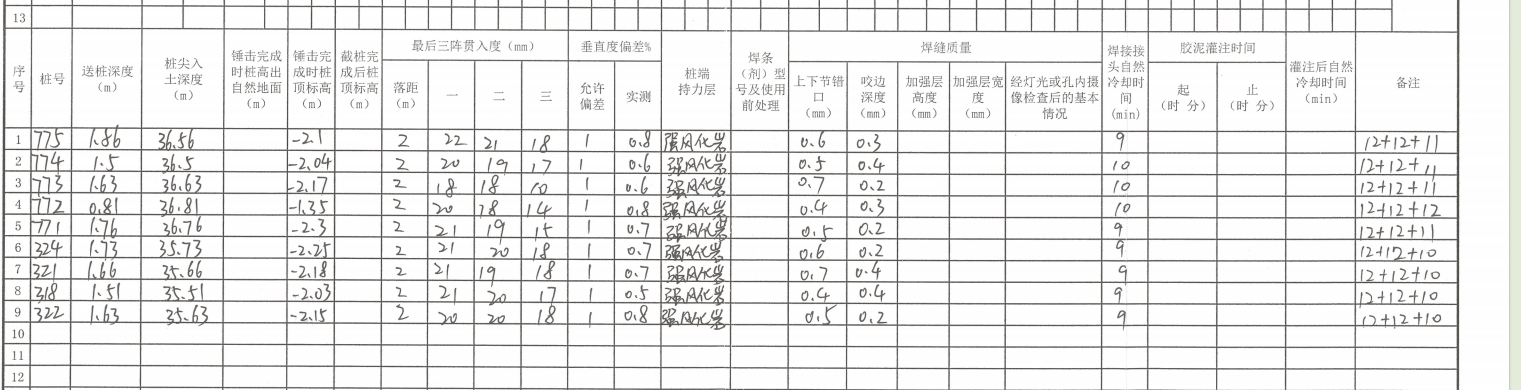 13
序号 桩号 送桩深度（m） 桩尖入土深度（m） 锤击完成时桩高出自然地面（m） 锤击完成时桩顶标高（m） 截桩完成后桩顶标高（m） 最后三阵贯入度（mm） 落距（m） 一 二 三 垂直度偏差% 允许偏差 实测 桩端持力层 焊条（剂）型号及使用前处理 焊缝质量 上下节错口（mm） 咬边深度（mm） 加强层高度（mm） 加强层宽度（mm） 经灯光或孔内摄像检查后的基本情况 焊接接头自然冷却时间（min） 胶泥灌注时间 起（时 分） 止（时 分） 灌注后自然冷却时间（min） 备注
1 775 1.86 36.56 -2.1 2 22 21 18 1 0.8 强风化岩 0.6 0.3 9 12+12+11
2 774 1.5 36.5 -2.04 2 20 19 17 1 0.6 强风化岩 0.5 0.4 10 12+12+11
3 773 1.63 36.63 -2.17 2 18 18 10 1 0.6 强风化岩 0.7 0.2 10 12+12+11
4 772 0.81 36.81 -1.35 2 20 18 14 1 0.8 强风化岩 0.4 0.3 10 12+12+12
5 771 1.76 36.76 -2.3 2 21 19 15 1 0.7 强风化岩 0.5 0.2 9 12+12+11
6 324 1.73 35.73 -2.25 2 21 20 18 1 0.7 强风化岩 0.6 0.2 9 12+12+10
7 321 1.66 35.66 -2.18 2 21 19 18 1 0.7 强风化岩 0.7 0.4 9 12+12+10
8 318 1.51 35.51 -2.03 2 21 20 17 1 0.5 强风化岩 0.4 0.4 9 12+12+10
9 322 1.63 35.63 -2.15 2 20 20 18 1 0.8 强风化岩 0.5 0.2 9 12+12+10
10
11
12